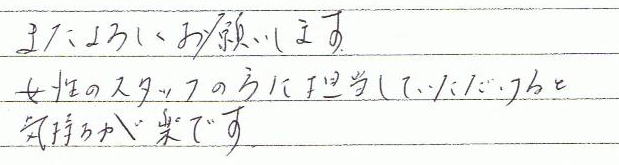 またよろしくお願いします
女性のスタッフの方に担当していただいけると
気持ちが楽です